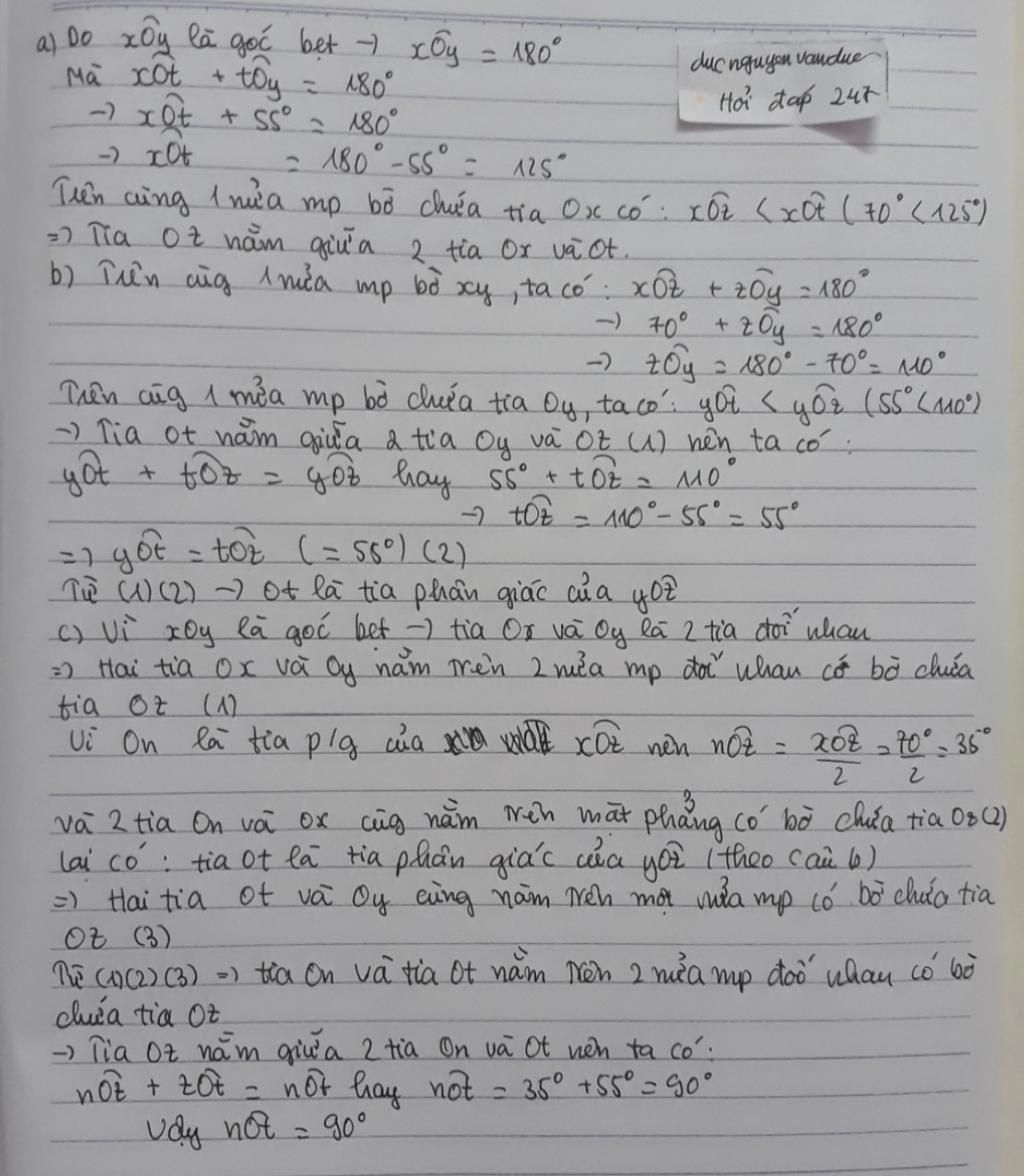 a) Do xÔy là góc bẹt → xÔy = 180°
Mà xÔt + tÔy = 180°
→ xÔt + 55° = 180°
→ xÔt = 180° - 55° = 125°
ducnguyenvanduc
Hỏi đáp 247
Trên cùng 1 nửa mp bờ chứa tia Ox có: xÔz < xÔt (70° < 125°)
=> Tia Oz nằm giữa 2 tia Ox và Ot.
b) Trên cùg 1 nửa mp bờ xy, ta có: xÔz + zÔy = 180°
→ 70° + zÔy = 180°
→ zÔy = 180° - 70° = 110°
Trên cùg 1 nửa mp bờ chứa tia Oy, ta có: yÔt < yÔz (55° < 110°)
→ Tia Ot nằm giữa 2 tia Oy và Oz (1) nên ta có:
yÔt + tÔz = yÔz hay 55° + tÔz = 110°
→ tÔz = 110° - 55° = 55°
=> yÔt = tÔz (= 55°) (2)
Từ (1)(2) → Ot là tia phân giác của yÔz
c) Vì xOy là góc bẹt → tia Ox và Oy là 2 tia đối nhau
=> Hai tia Ox và Oy nằm trên 2 nửa mp đối nhau có bờ chứa
tia Oz (1)
Vì On là tia p/g của xÔz nên nÔz = xÔz/2 = 70°/2 = 35°
và 2 tia On và Ox cùg nằm trên mặt phẳng có bờ chứa tia Oz (2)
lại có: tia Ot là tia phân giác của yÔz (theo câu b)
=> Hai tia Ot và Oy cùng nằm trên một nửa mp có bờ chứa tia
Oz (3)
Từ (1)(2)(3) => tia On và tia Ot nằm trên 2 nửa mp đối nhau có bờ
chứa tia Oz
→ Tia Oz nằm giữa 2 tia On và Ot nên ta có:
nÔz + zÔt = nÔt hay nÔt = 35° + 55° = 90°
Vậy nÔt = 90°